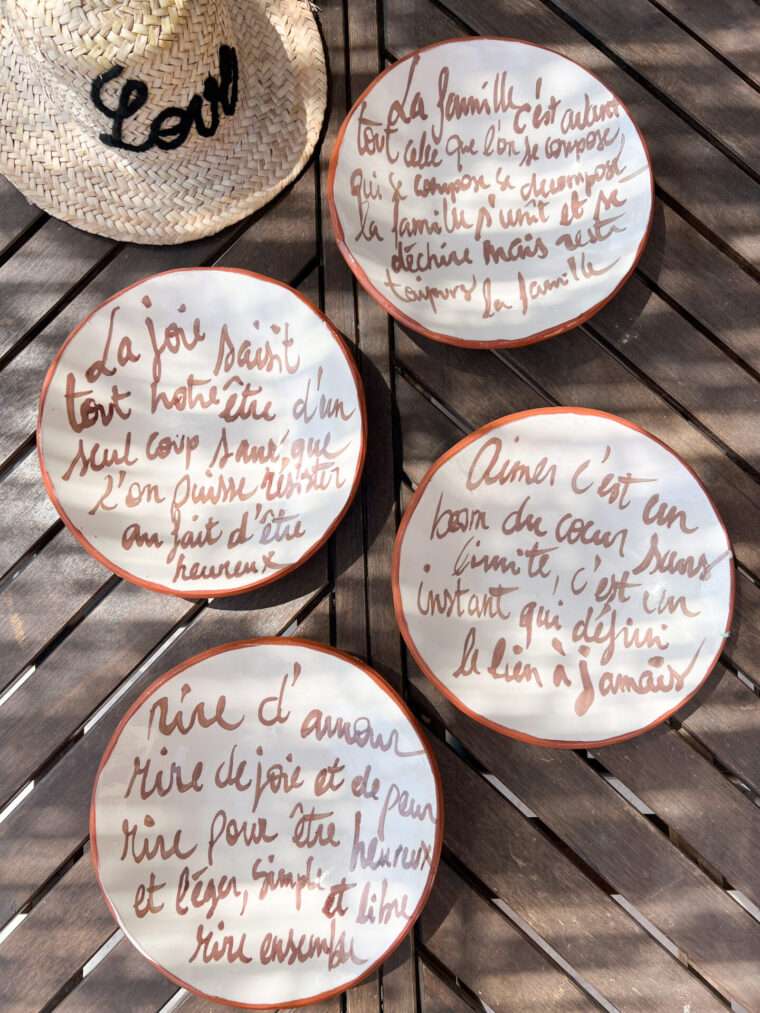 Lovr
La famille c'est autant
tout celée que l'on se compose,
qui se compose se decompose
la famille s'unît et se
déchire mais reste
toujours la famille
La joie saisit
tout notre être d'un
seul coup sans que
l'on puisse résister
au fait d'être
heureux
Aimer c'est un
bom du coeur sans
limite, c'est un
instant qui défini
le lien à jamais
rire d'amour
rire de joie et de peur
rire pour être heureux
et léger, simple et libre
rire ensemble